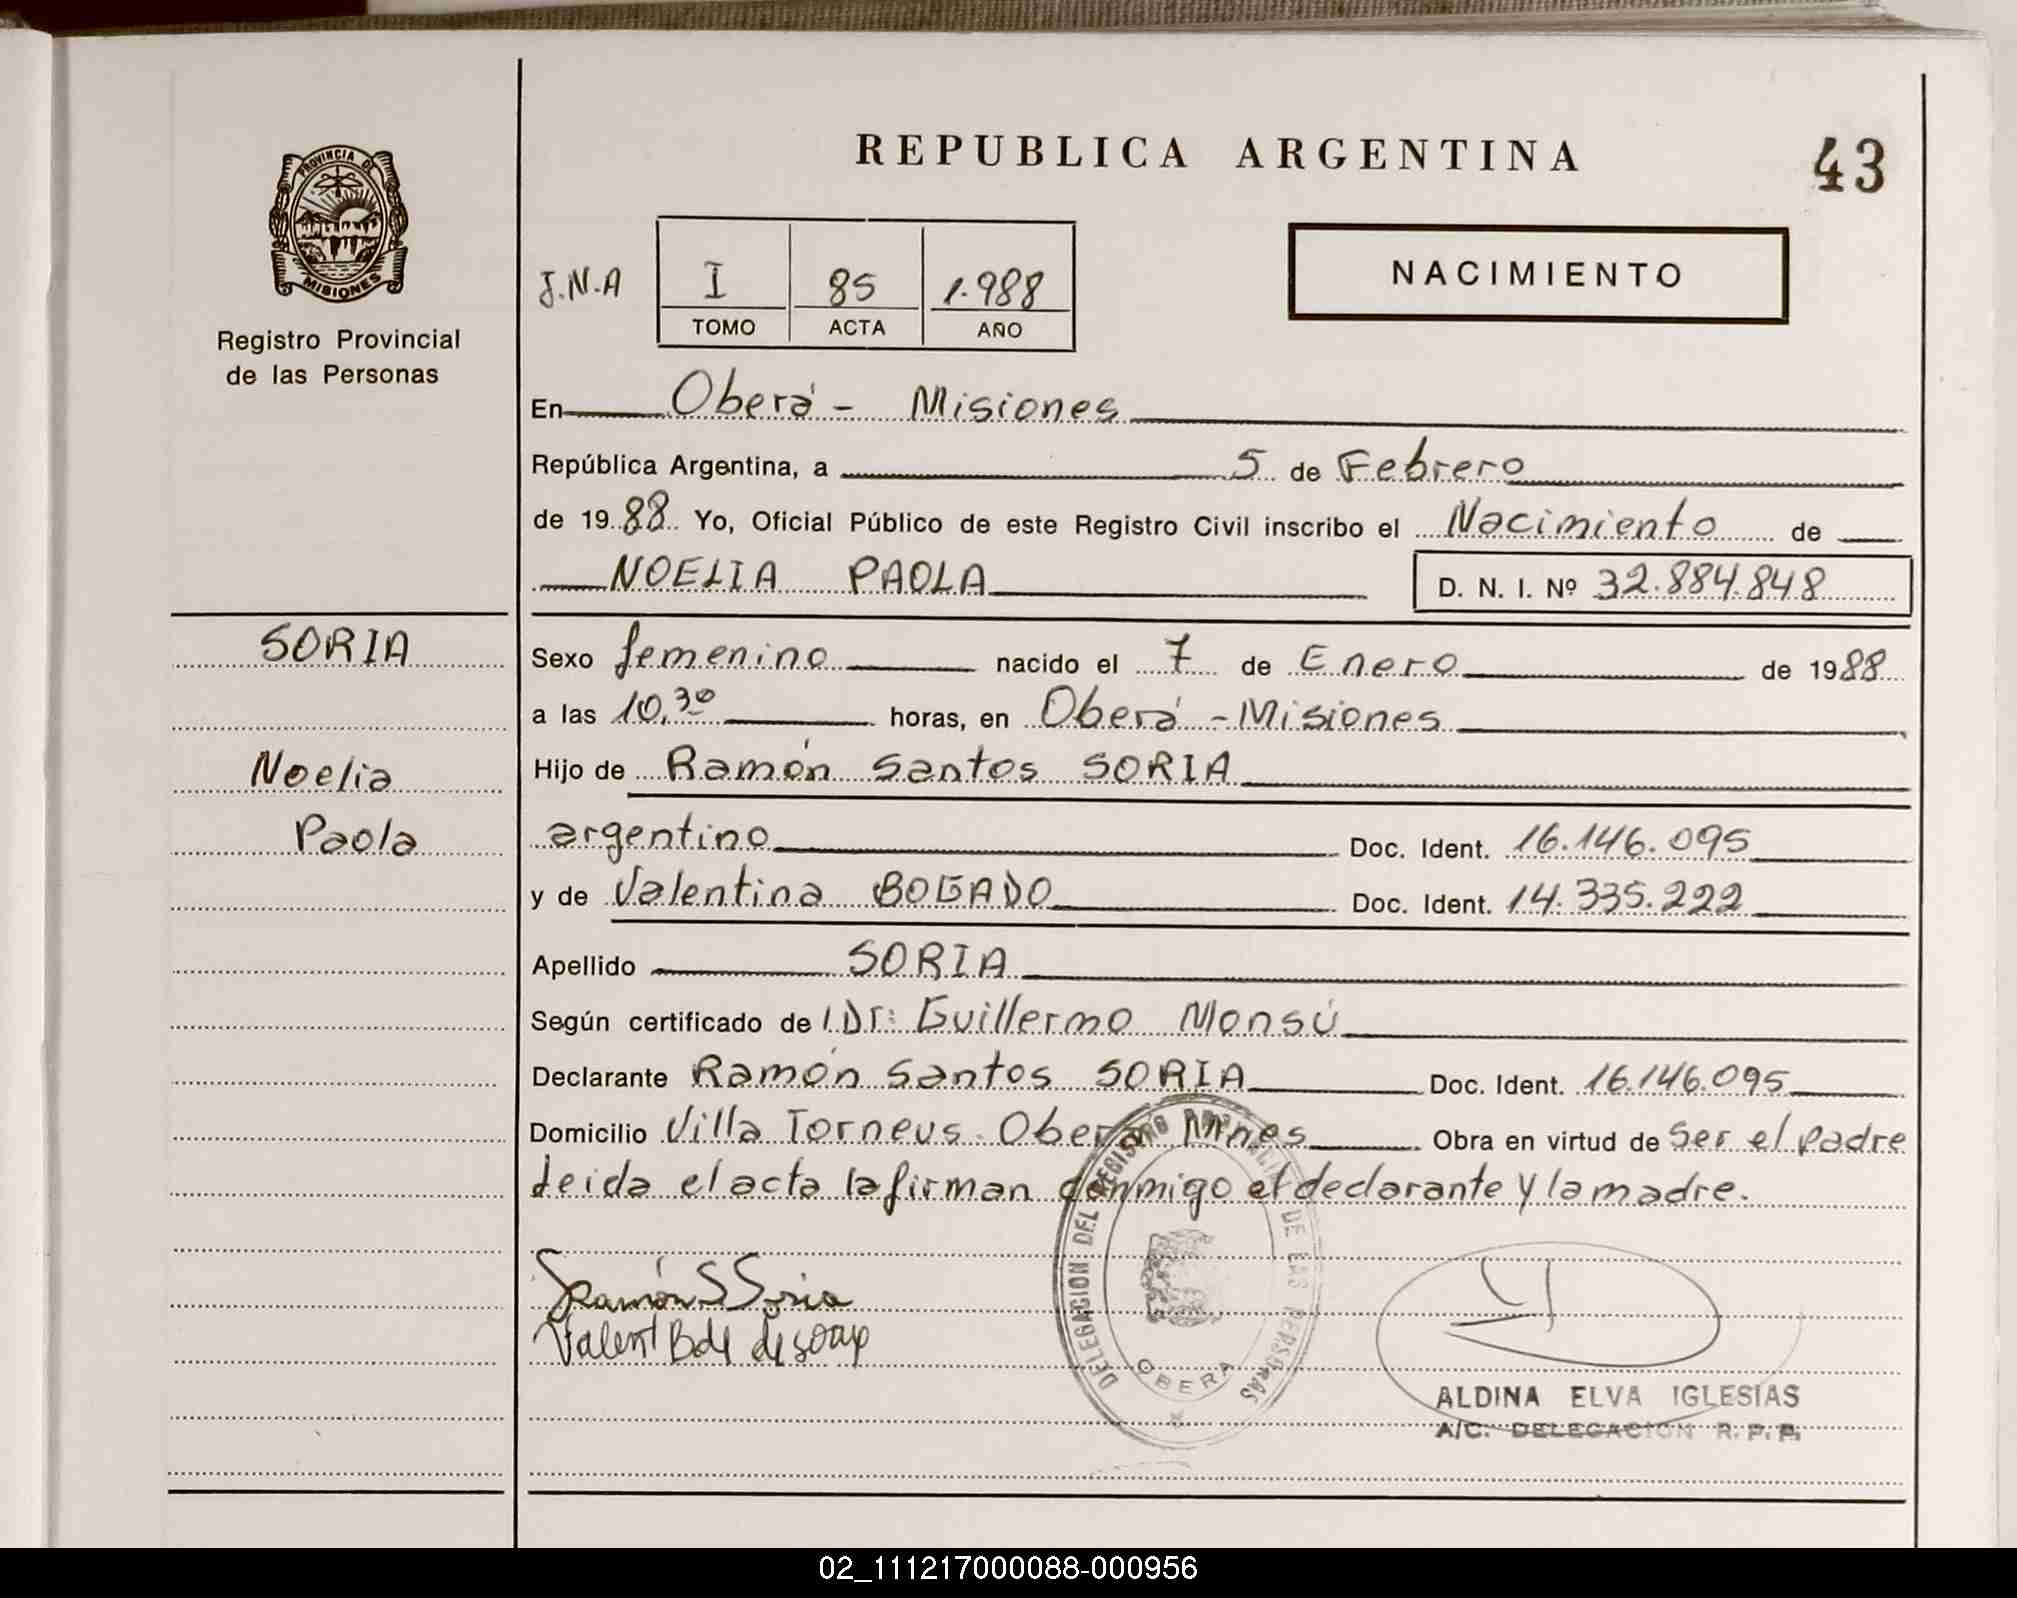 REPUBLICA ARGENTINA
43
PROVINCIA DE
MISIONES
Registro Provincial
de las Personas
J.N.A
I
85
1.988
TOMO
ACTA
AÑO
NACIMIENTO
En Oberá - Misiones
República Argentina, a 5 de Febrero
de 1988 Yo, Oficial Público de este Registro Civil inscribo el Nacimiento de
NOELIA PAOLA
D. N. I. Nº 32.884.848
SORIA
Noelia
Paola
Sexo femenino nacido el 7 de Enero de 1988
a las 10,30 horas, en Oberá - Misiones
Hijo de Ramón Santos SORIA
argentino Doc. Ident. 16.146.095
y de Valentina BOGADO Doc. Ident. 14.335.222
Apellido SORIA
Según certificado de Dr: Guillermo Monsú
Declarante Ramón Santos SORIA Doc. Ident. 16.146.095
Domicilio Villa Torneus. Oberá Mnes Obra en virtud de ser el padre
Leida el acta la firman conmigo el declarante y la madre.
Ramón S Soria
DELEGACION DEL REGISTRO PROVINCIAL DE LAS PERSONAS
OBERA
ALDINA ELVA IGLESIAS
A/C. DELEGACION R. P. P.
02_111217000088-000956